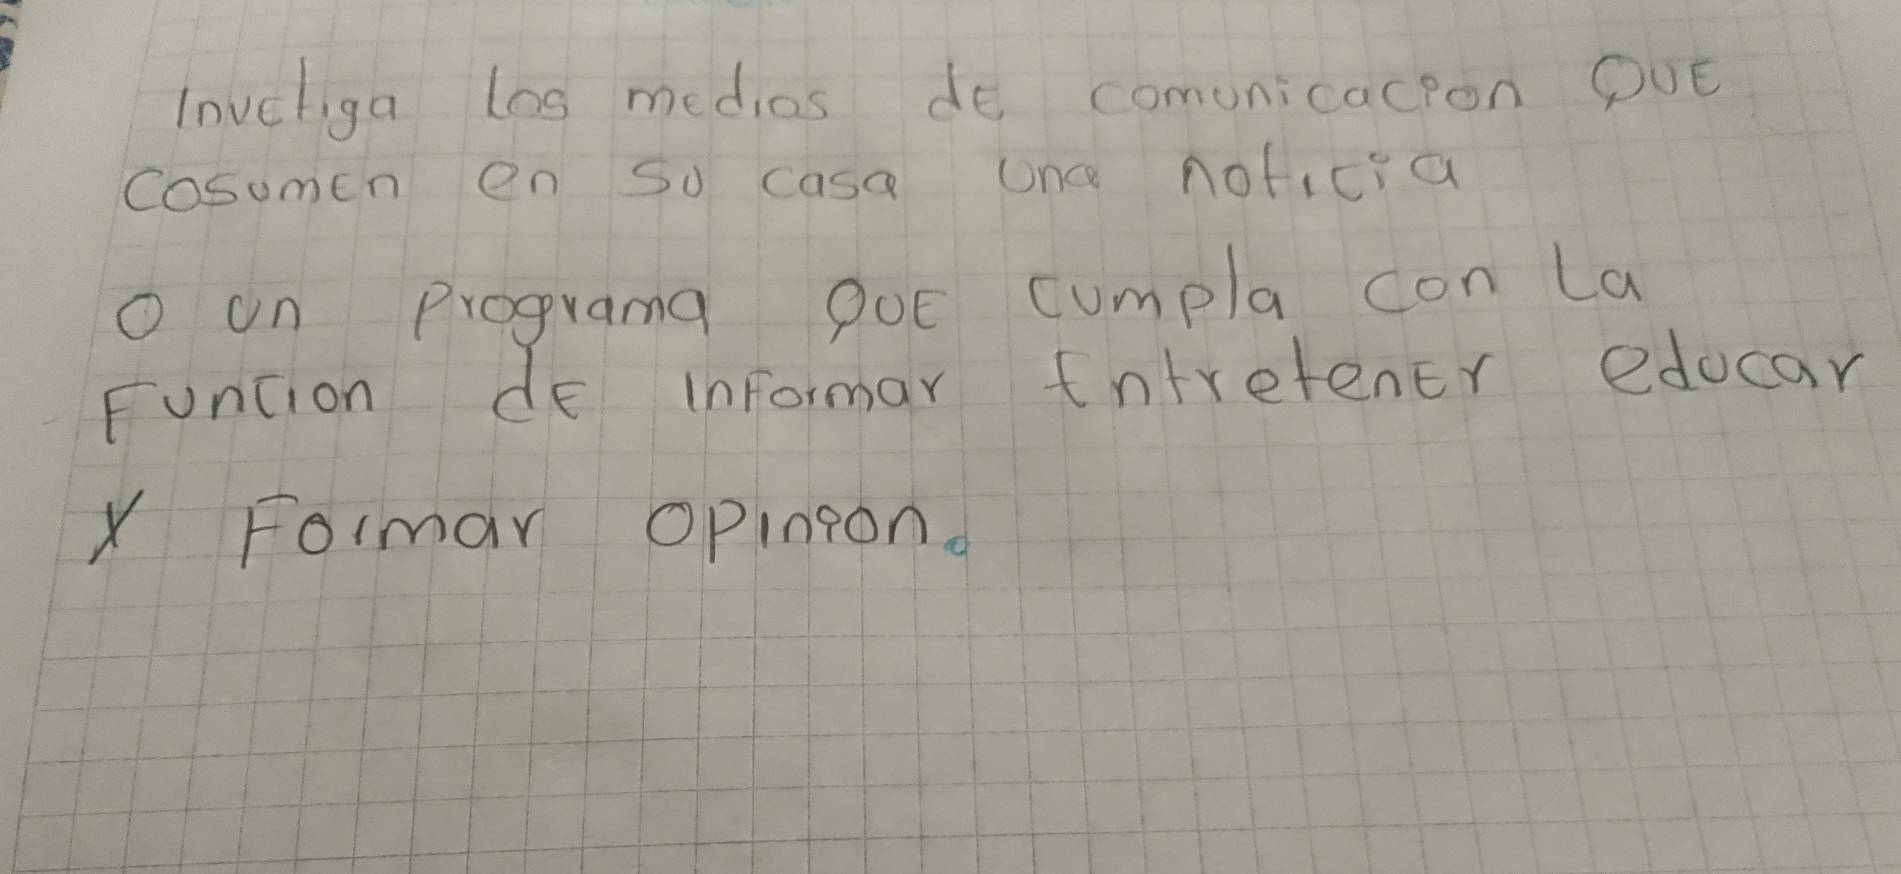 Invetiga los medios de comunicacion QUE
cosumen en su casa una noticia
O un programa QUE cumpla con la
Funcion de informar Entretener educar
Y Formar opinion.